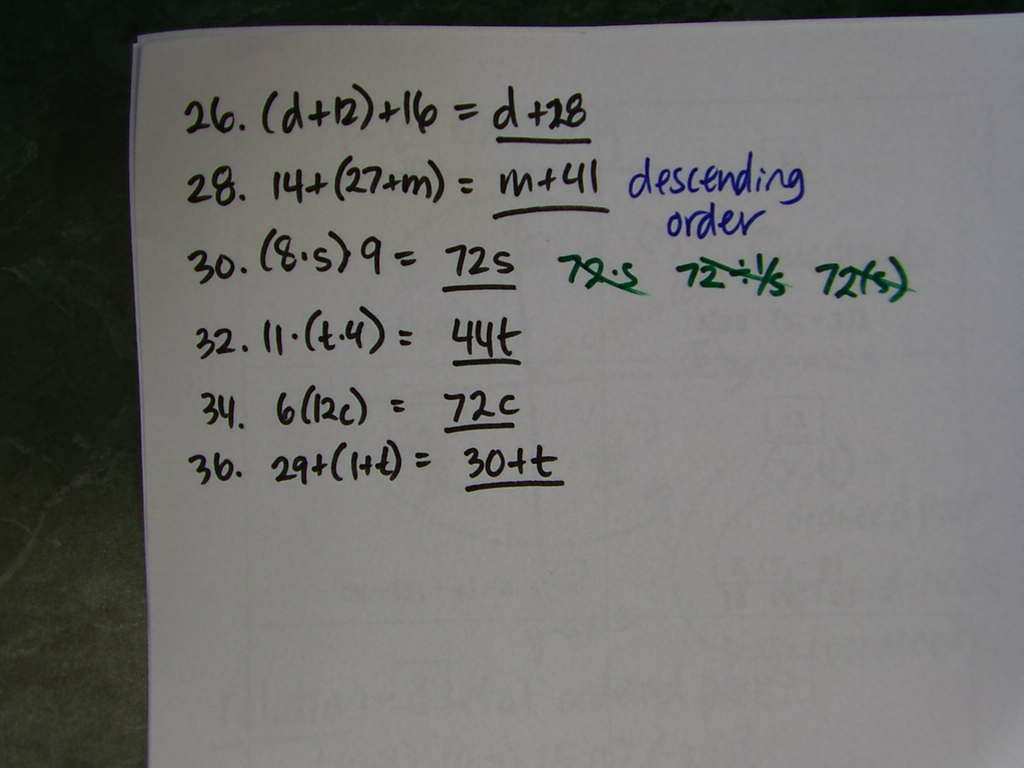 26. (d+12)+16 = d+28
28. 14+(27+m) = m+41 descending
order
30. (8·s)9 = 72s 72·s 72÷1/s 72(s)
32. 11·(t·4) = 44t
34. 6(12c) = 72c
36. 29+(1+t) = 30+t